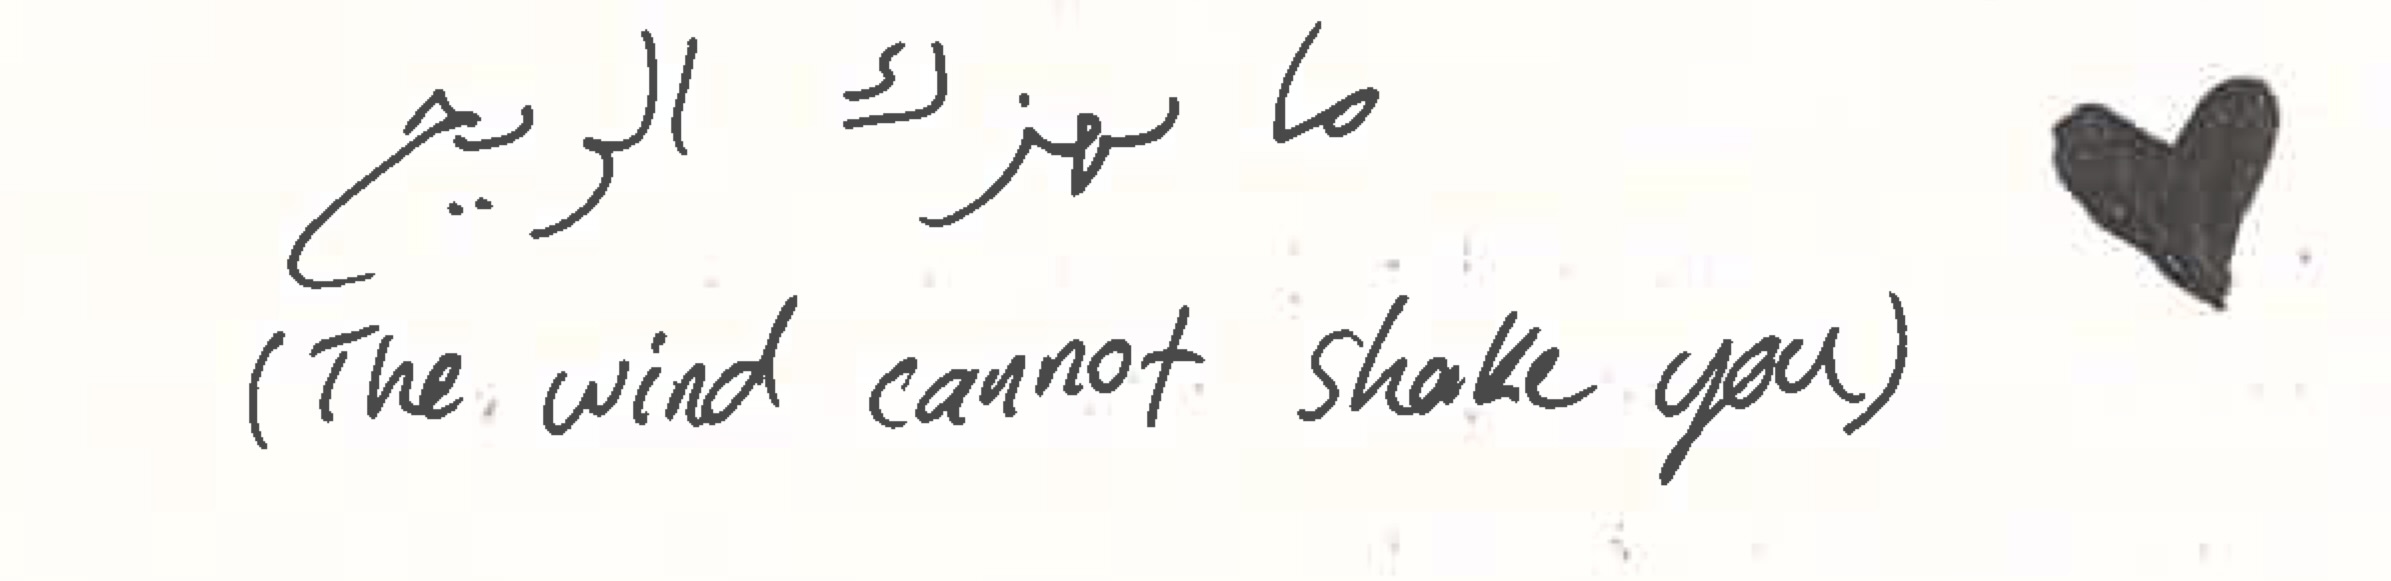 ما يهزك الريح
(The wind cannot shake you)